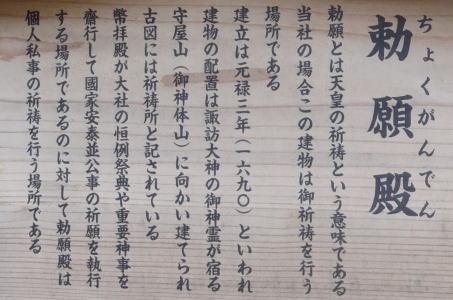 ちょくがんでん
勅願殿
勅願とは天皇の祈祷という意味である
当社の場合この建物は御祈祷を行う
場所である
建立は元禄三年(一六九〇)といわれ
建物の配置は諏訪大神の御神霊が宿る
守屋山(御神体山)に向かい建てられ
古図には祈祷所と記されている
幣拝殿が大社の恒例祭典や重要神事を
齋行して國家安泰並公事の祈願を執行
する場所であるのに対して勅願殿は
個人私事の祈祷を行う場所である